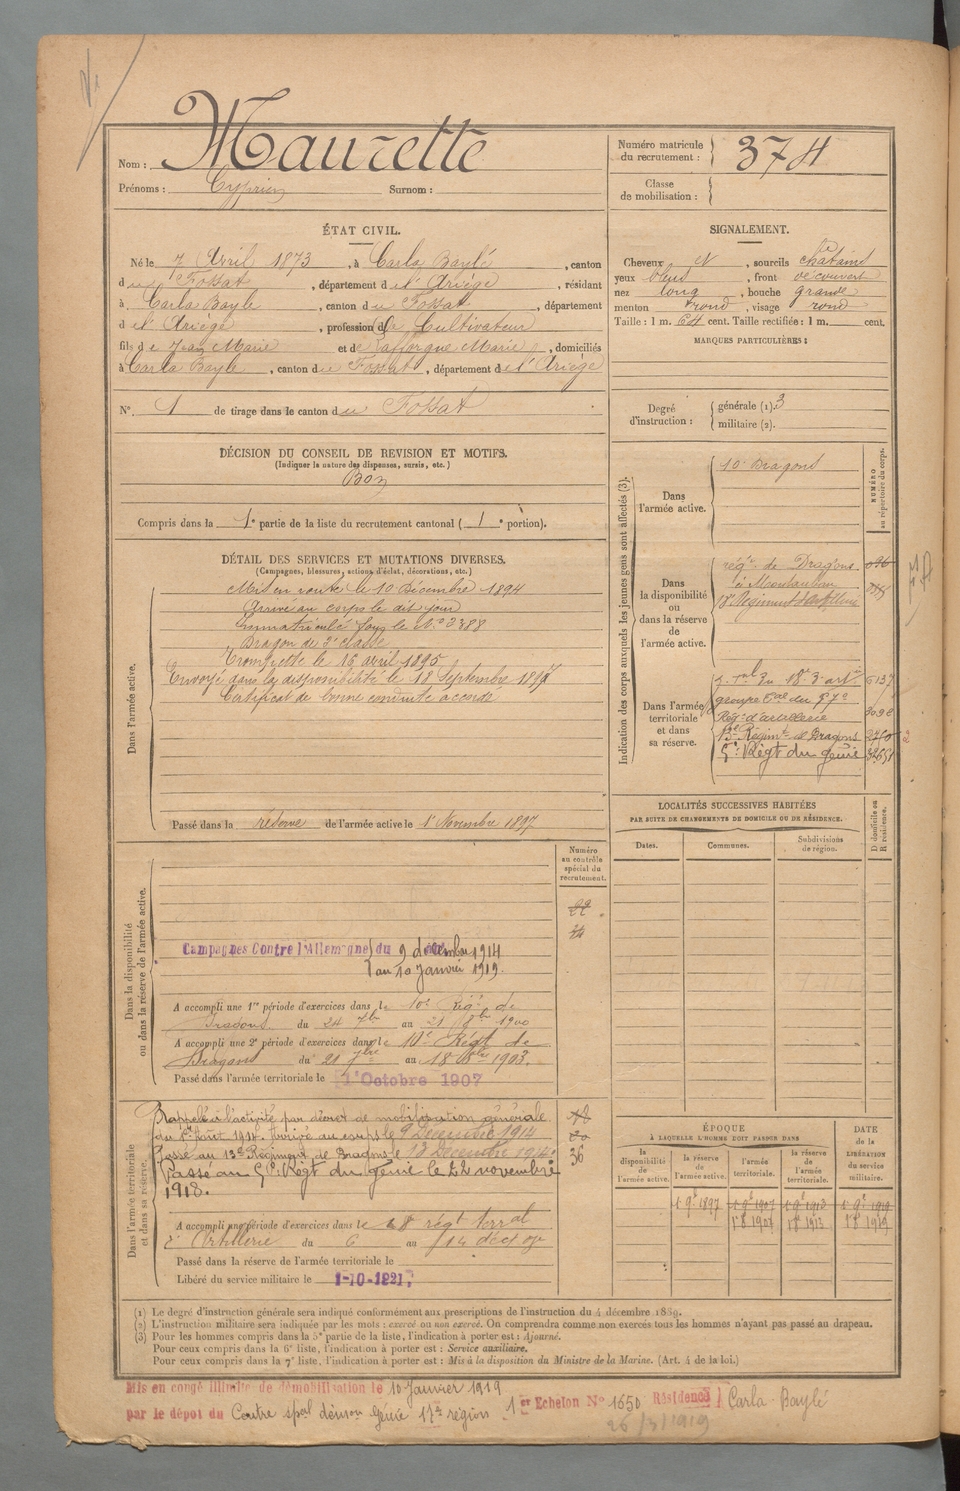 Nom : Maurette
Prénoms : Cyprien Surnom :
Numéro matricule du recrutement : 374
Classe de mobilisation :
ÉTAT CIVIL.
Né le 7 Avril 1873, à Carla Bayle, canton
du Fossat, département de l'Ariège, résidant
à Carla Bayle, canton du Fossat, département
de l'Ariège, profession de Cultivateur
fils de Jean Marie et de Lafforgue Marie, domiciliés
à Carla Bayle, canton du Fossat, département de l'Ariège
N° 1 de tirage dans le canton du Fossat
SIGNALEMENT.
Cheveux N, sourcils châtains
yeux bleus, front découvert
nez long, bouche grande
menton rond, visage rond
Taille : 1 m. 64 cent. Taille rectifiée : 1 m. cent.
MARQUES PARTICULIÈRES :
Degré d'instruction : générale (1). 3
militaire (2).
DÉCISION DU CONSEIL DE REVISION ET MOTIFS.
(Indiquer la nature des dispenses, sursis, etc.)
Bon
Compris dans la 1e partie de la liste du recrutement cantonal (1e portion).
DÉTAIL DES SERVICES ET MUTATIONS DIVERSES.
(Campagnes, blessures, actions d'éclat, décorations, etc.)
Dans l'armée active.
Mis en route le 10 Décembre 1894
Arrivé au corps le dit jour
Immatriculé sous le N° 2388
Dragon de 2e classe
Trompette le 15 avril 1895
Envoyé dans la disponibilité le 18 Septembre 1897
Certificat de bonne conduite accordé
Passé dans la réserve de l'armée active le 1r Novembre 1897
Indication des corps auxquels les jeunes gens sont affectés (3).
NUMÉRO au répertoire du corps.
Dans l'armée active.
10e Dragons
Dans la disponibilité ou dans la réserve de l'armée active.
régt de Dragons
à Montauban
18e Régiment d'artillerie
Dans l'armée territoriale et dans sa réserve.
groupe tal du 57e
Régt d'artillerie 3098
13e Régimt de Dragons
5e Régt du génie
LOCALITÉS SUCCESSIVES HABITÉES
PAR SUITE DE CHANGEMENTS DE DOMICILE OU DE RÉSIDENCE.
Dates. Communes. Subdivisions de région. D domicile ou R résidence.
Numéro au contrôle spécial du recrutement.
22
Dans la disponibilité ou dans la réserve de l'armée active.
Campagnes Contre l'Allemagne du 9 décembre 1914
au 10 Janvier 1919.
A accompli une 1re période d'exercices dans le 10e Régt de
Dragons du 24 7bre au 21 8bre 1900
A accompli une 2e période d'exercices dans le 10e Régt de
Dragons du 21 7bre au 18 8bre 1903.
Passé dans l'armée territoriale le 1r Octobre 1907
Dans l'armée territoriale et dans sa réserve.
Rappelé à l'activité par décret de mobilisation générale
du 1er Août 1914. Arrivé au corps le 9 Décembre 1914
Passé au 13e Régiment de Dragons le 13 Décembre 1914.
Passé au 5e Régt du génie le 22 novembre
1918.
36
A accompli une période d'exercices dans le 18 régt terral
d'Artillerie du 6 au 14 déct 07
Passé dans la réserve de l'armée territoriale le
Libéré du service militaire le 1-10-1921
ÉPOQUE
À LAQUELLE L'HOMME DOIT PASSER DANS
DATE de la LIBÉRATION du service militaire.
la disponibilité de l'armée active. la réserve de l'armée active. l'armée territoriale. la réserve de l'armée territoriale.
1r 9e 1897 1r 9e 1907 1r 9e 1913 1r 9e 1919
1r 8 1907 1r 8 1913 1r 8 1919
(1) Le degré d'instruction générale sera indiqué conformément aux prescriptions de l'instruction du 4 décembre 1889.
(2) L'instruction militaire sera indiquée par les mots : exercé ou non exercé. On comprendra comme non exercés tous les hommes n'ayant pas passé au drapeau.
(3) Pour les hommes compris dans la 5e partie de la liste, l'indication à porter est : Ajourné.
Pour ceux compris dans la 6e liste, l'indication à porter est : Service auxiliaire.
Pour ceux compris dans la 7e liste, l'indication à porter est : Mis à la disposition du Ministre de la Marine. (Art. 4 de la loi.)
Mis en congé illimité de démobilisation le 10 Janvier 1919
par le dépôt du Centre spal démon Génie 17e région 1er Echelon N° 1650 Résidence Carla-Baylé
26/3/1919